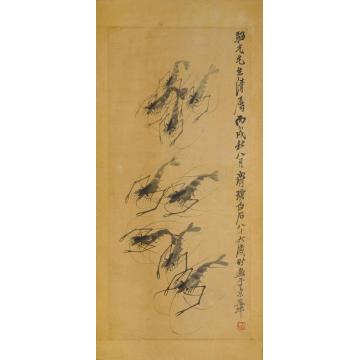 先生清属丙戌秋八月齐璜白石八十六岁时画于京华